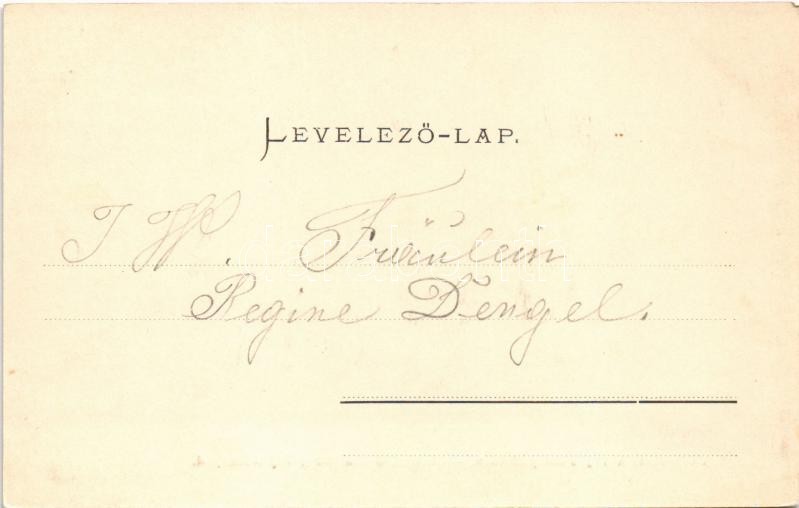 LEVELEZŐ-LAP.
Fräulein
Regine Dengel.